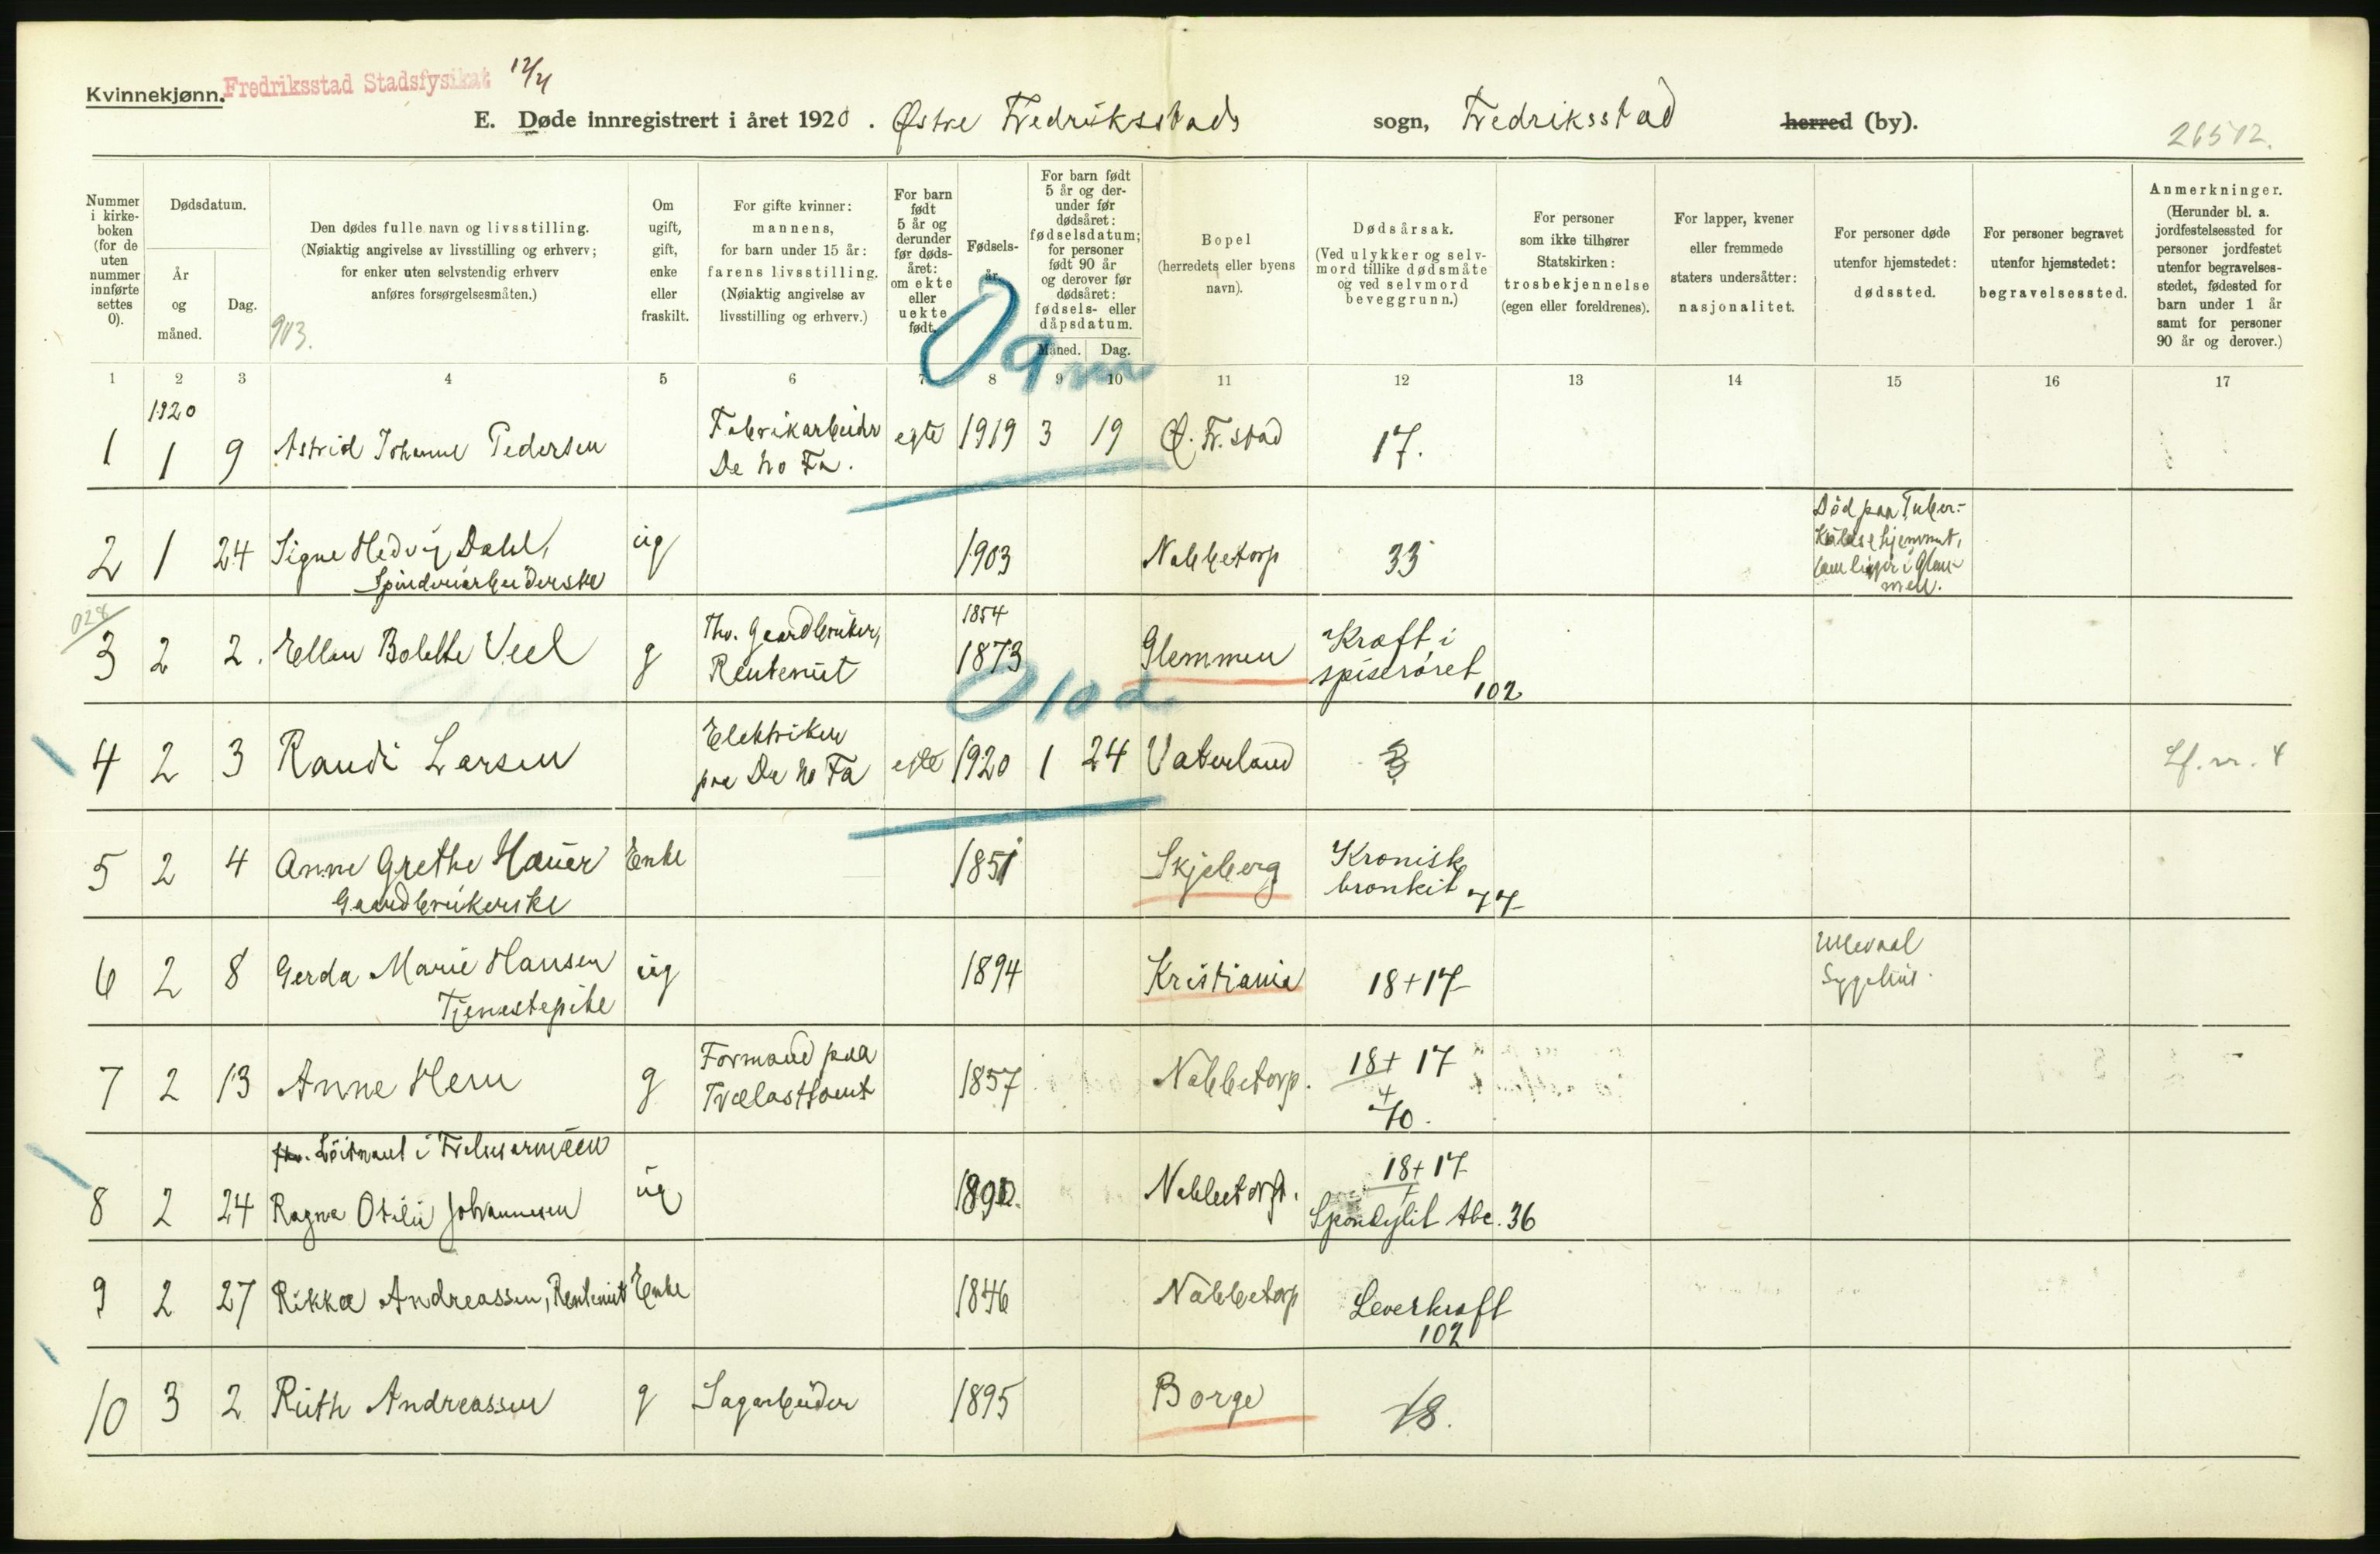 Kvinnekjønn. Fredriksstad Stadsfysikat 12/4
E. Døde innregistrert i året 1920. Østre Fredriksstads sogn, Fredriksstad herred (by).
26512.
Nummer i kirkeboken (for de uten nummer innførte settes 0).
Dødsdatum.
År og måned.
Dag.
Den dødes fulle navn og livsstilling.
(Nøiaktig angivelse av livsstilling og erhverv;
for enker uten selvstendig erhverv
anføres forsørgelsesmåten.)
903.
Om ugift, gift, enke eller fraskilt.
For gifte kvinner:
mannens,
for barn under 15 år:
farens livsstilling.
(Nøiaktig angivelse av
livsstilling og erhverv.)
For barn født 5 år og derunder før dødsåret: om ekte eller uekte født.
Fødselsår.
For barn født 5 år og derunder før dødsåret: fødselsdatum; for personer født 90 år og derover før dødsåret: fødsels- eller dåpsdatum.
Måned. Dag.
Bopel
(herredets eller byens navn).
Dødsårsak.
(Ved ulykker og selvmord tillike dødsmåte og ved selvmord beveggrunn.)
For personer
som ikke tilhører
Statskirken:
trosbekjennelse
(egen eller foreldrenes).
For lapper, kvener
eller fremmede
staters undersåtter:
nasjonalitet.
For personer døde
utenfor hjemstedet:
dødssted.
For personer begravet
utenfor hjemstedet:
begravelsessted.
Anmerkninger.
(Herunder bl. a.
jordfestelsessted for
personer jordfestet
utenfor begravelsesstedet, fødested for
barn under 1 år
samt for personer
90 år og derover.)
0 9 m
1 2 3 4 5 6 7 8 9 10 11 12 13 14 15 16 17
1920
1 1 9 Astrid Johanne Pedersen Fabrikarbeider De No Fa. egte 1919 3 19 Ø. Fr. stad 17.
2 1 24 Signe Hedvig Dahl, Spinderiarbeiderske ug 1903 Nabbetorp 33 Død paa Tuberkulosehjemmet, som ligger i Glemmen.
028
3 2 2. Ellen Bolette Veel g Fhv. Gaardbruker, Rentenist 1854 1873 Glemmen Kræft i spiserøret 102
0 10 d
4 2 3 Randi Larsen Elektriker paa De No Fa egte 1920 1 24 Vaterland Lf. nr. 4
5 2 4 Anne Grethe Hauer Gaardbrukerske Enke 1851 Skjeberg Kronisk bronkit 77
6 2 8 Gerda Marie Hansen Tjenestepike ug 1894 Kristiania 18+17 Ullevaal Sygehus.
7 2 13 Anne Hern g Formand paa Trælasttomt 1857 Nabbetorp. 18+17 + 70.
8 2 24 fhv. Løitnant i Frelsesarmeen Ragna Otilie Johannesen ug Nabbetorp. 18+17 + Spondylit tbc. 36
9 2 27 Rikka Andreassen, Rentenist Enke 1846 Nabbetorp Leverkræft 102
10 3 2 Ruth Andreassen g Sagarbeider 1895 Borge 18.